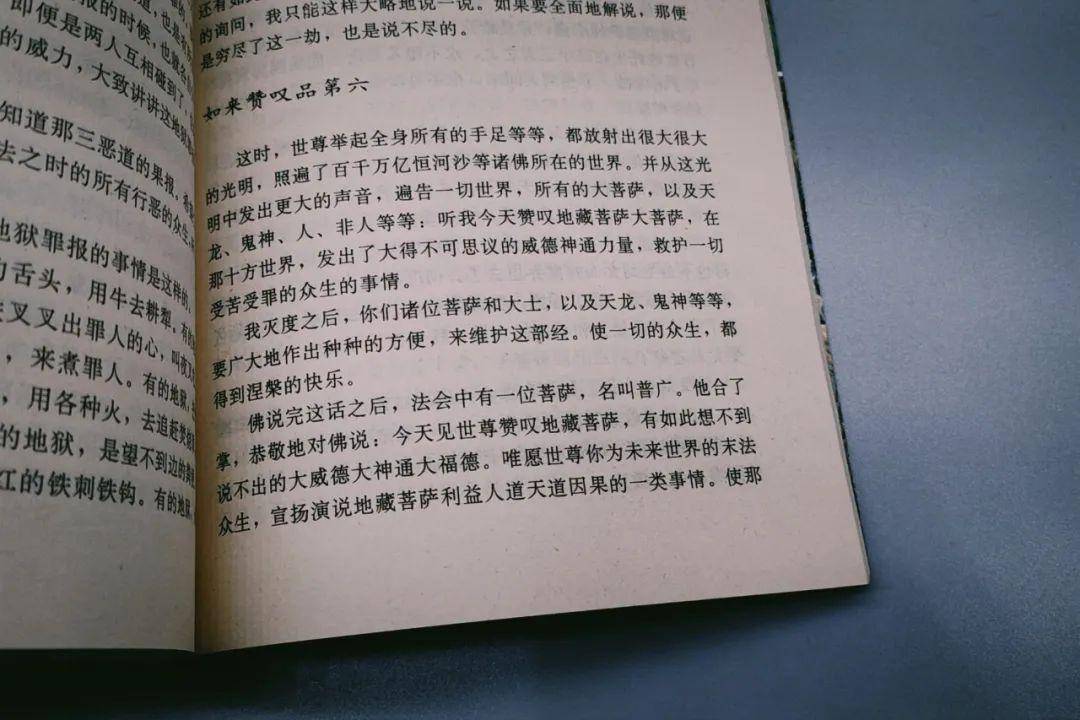 道,也是有
报的时候,也就各
即便是两人互相碰到了,
的威力,大致讲讲这地狱
知道那三恶道的果报。希
去之时的所有行恶的众生,
地狱罪报的事情是这样的,
的舌头,用牛去耕犁。有的
叉叉出罪人的心,叫夜
,来煮罪人。有的地狱,
,用各种火,去追赶焚烧
的地狱,是望不到边的粪
江的铁刺铁钩。有的地狱,
还有如
的询问,我只能这样大略地说一说。如果要全面地解说,那便
是穷尽了这一劫,也是说不尽的。
如来赞叹品第六
这时,世尊举起全身所有的手足等等,都放射出很大很大
的光明,照遍了百千万亿恒河沙等诸佛所在的世界。并从这光
明中发出更大的声音,遍告一切世界,所有的大菩萨,以及天
龙、鬼神、人、非人等等:听我今天赞叹地藏菩萨大菩萨,在
那十方世界,发出了大得不可思议的威德神通力量,救护一切
受苦受罪的众生的事情。
我灭度之后,你们诸位菩萨和大士,以及天龙、鬼神等等,
要广大地作出种种的方便,来维护这部经。使一切的众生,都
得到涅槃的快乐。
佛说完这话之后,法会中有一位菩萨,名叫普广。他合了
掌,恭敬地对佛说:今天见世尊赞叹地藏菩萨,有如此想不到
说不出的大威德大神通大福德。唯愿世尊你为未来世界的末法
众生,宣扬演说地藏菩萨利益人道天道因果的一类事情。使那